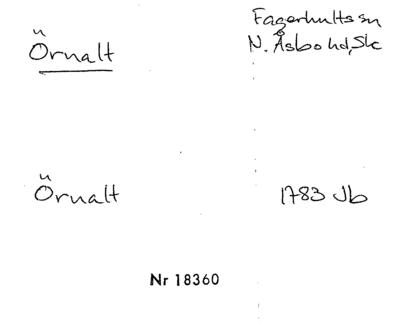 Örnalt
Fagerhults sn
N. Åsbo hd, Sk
Örnalt
1783 Jb
Nr 18360